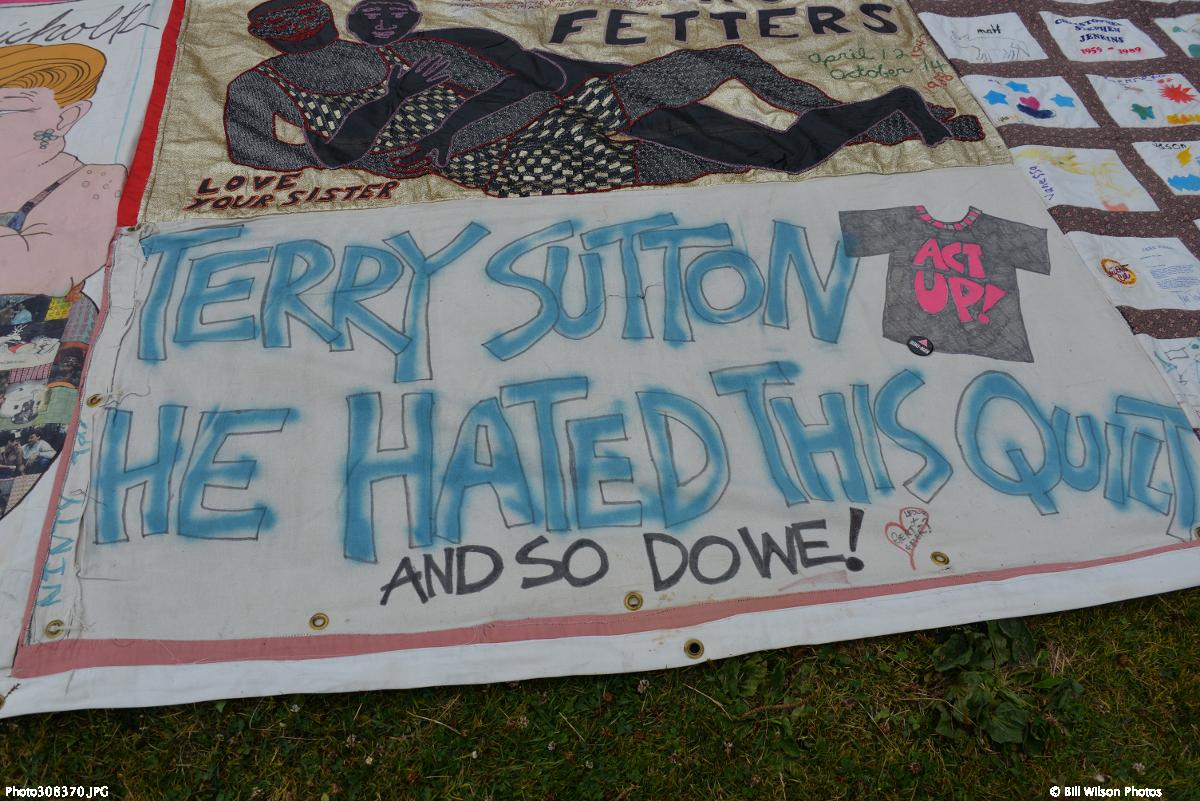 icholt
FETTERS
April 12 1945
October 14
LOVE
YOUR SISTER
matt
CHRISTOPHER
STEPHEN
JENKINS
1959 - 1989
Vanessa
TERRY SUTTON
ACT
UP!
HE HATED THIS QUILT
AND SO DO WE!
Photo308370.JPG
© Bill Wilson Photos